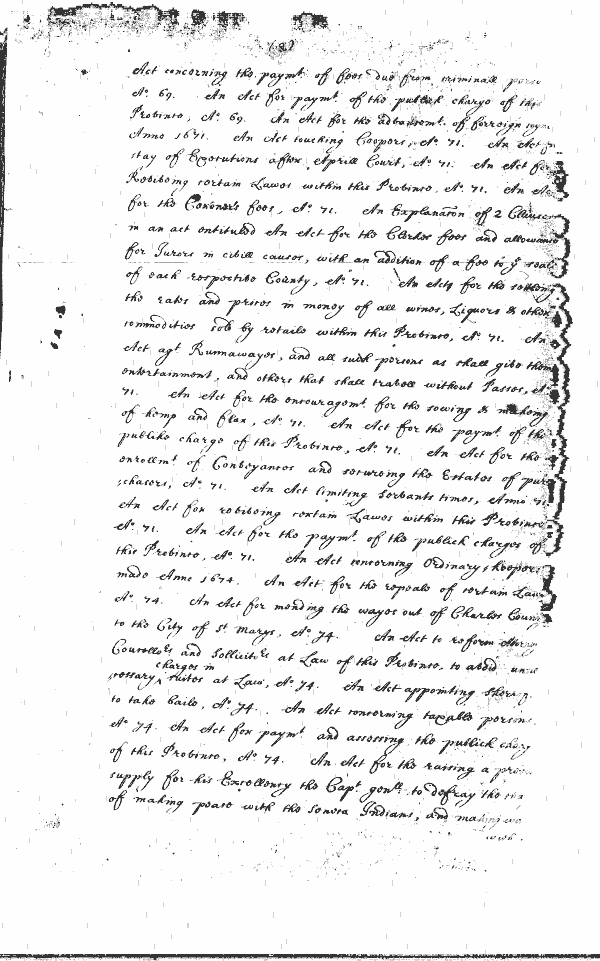 Act concerning the paym.t of fees due from criminall
A.o 69. An Act for paym.t of the publick charge of this
Province, A.o 69. An Act for the advancem.t of forreign
Anno 1671. An Act touching Coopers, A.o 71. An Act
stay of Executions after Aprill Court, A.o 71. An Act for
Reviveing certain Lawes within this Province, A.o 71. An Act
for the Coroner's fees, A.o 71. An Explanation of 2 Clauses
in an act entituled An Act for the Clerkes fees and allowance
for Jurors in civill causes, with an addition of a fee to y.e seale
of each respective County, A.o 71. An Act for the setling
the rates and prices in money of all wines, Liquors & other
commodities sold by retaile within this Province, A.o 71. An
Act ag.t Runnawayes, and all such persons as shall give them
entertainment, and others that shall travell without Passes, A.o
71. An Act for the encouragem.t for the sowing & makeing
of hemp and flax, A.o 71. An Act for the paym.t of the
publike charge of this Province, A.o 71. An Act for the
enrollm.t of Conveyances and secureing the Estates of pur
chasers, A.o 71. An Act limiting Servants times, Anno 71
An Act for reviveing certain Lawes within this Province
A.o 71. An Act for the paym.t of the publick charges of
this Province, A.o 71. An Act concerning Ordinary keepers
made Anno 1674. An Act for the repeale of certain Laws
A.o 74. An Act for mending the wayes out of Charles County
to the City of S.t Marys, A.o 74. An Act to reform
Councello.rs and Sollicito.rs at Law of this Province, to avoid
charges in
cessary suites at Law, A.o 74. An Act appointing
to take baile, A.o 74. An Act concerning taxable persons
A.o 74. An Act for paym.t and assessing the publick charg
of this Province, A.o 74. An Act for the raising a
supply for his Excellency the Cap.t gen.ll to defray the
of making peace with the Seneca Indians, and making